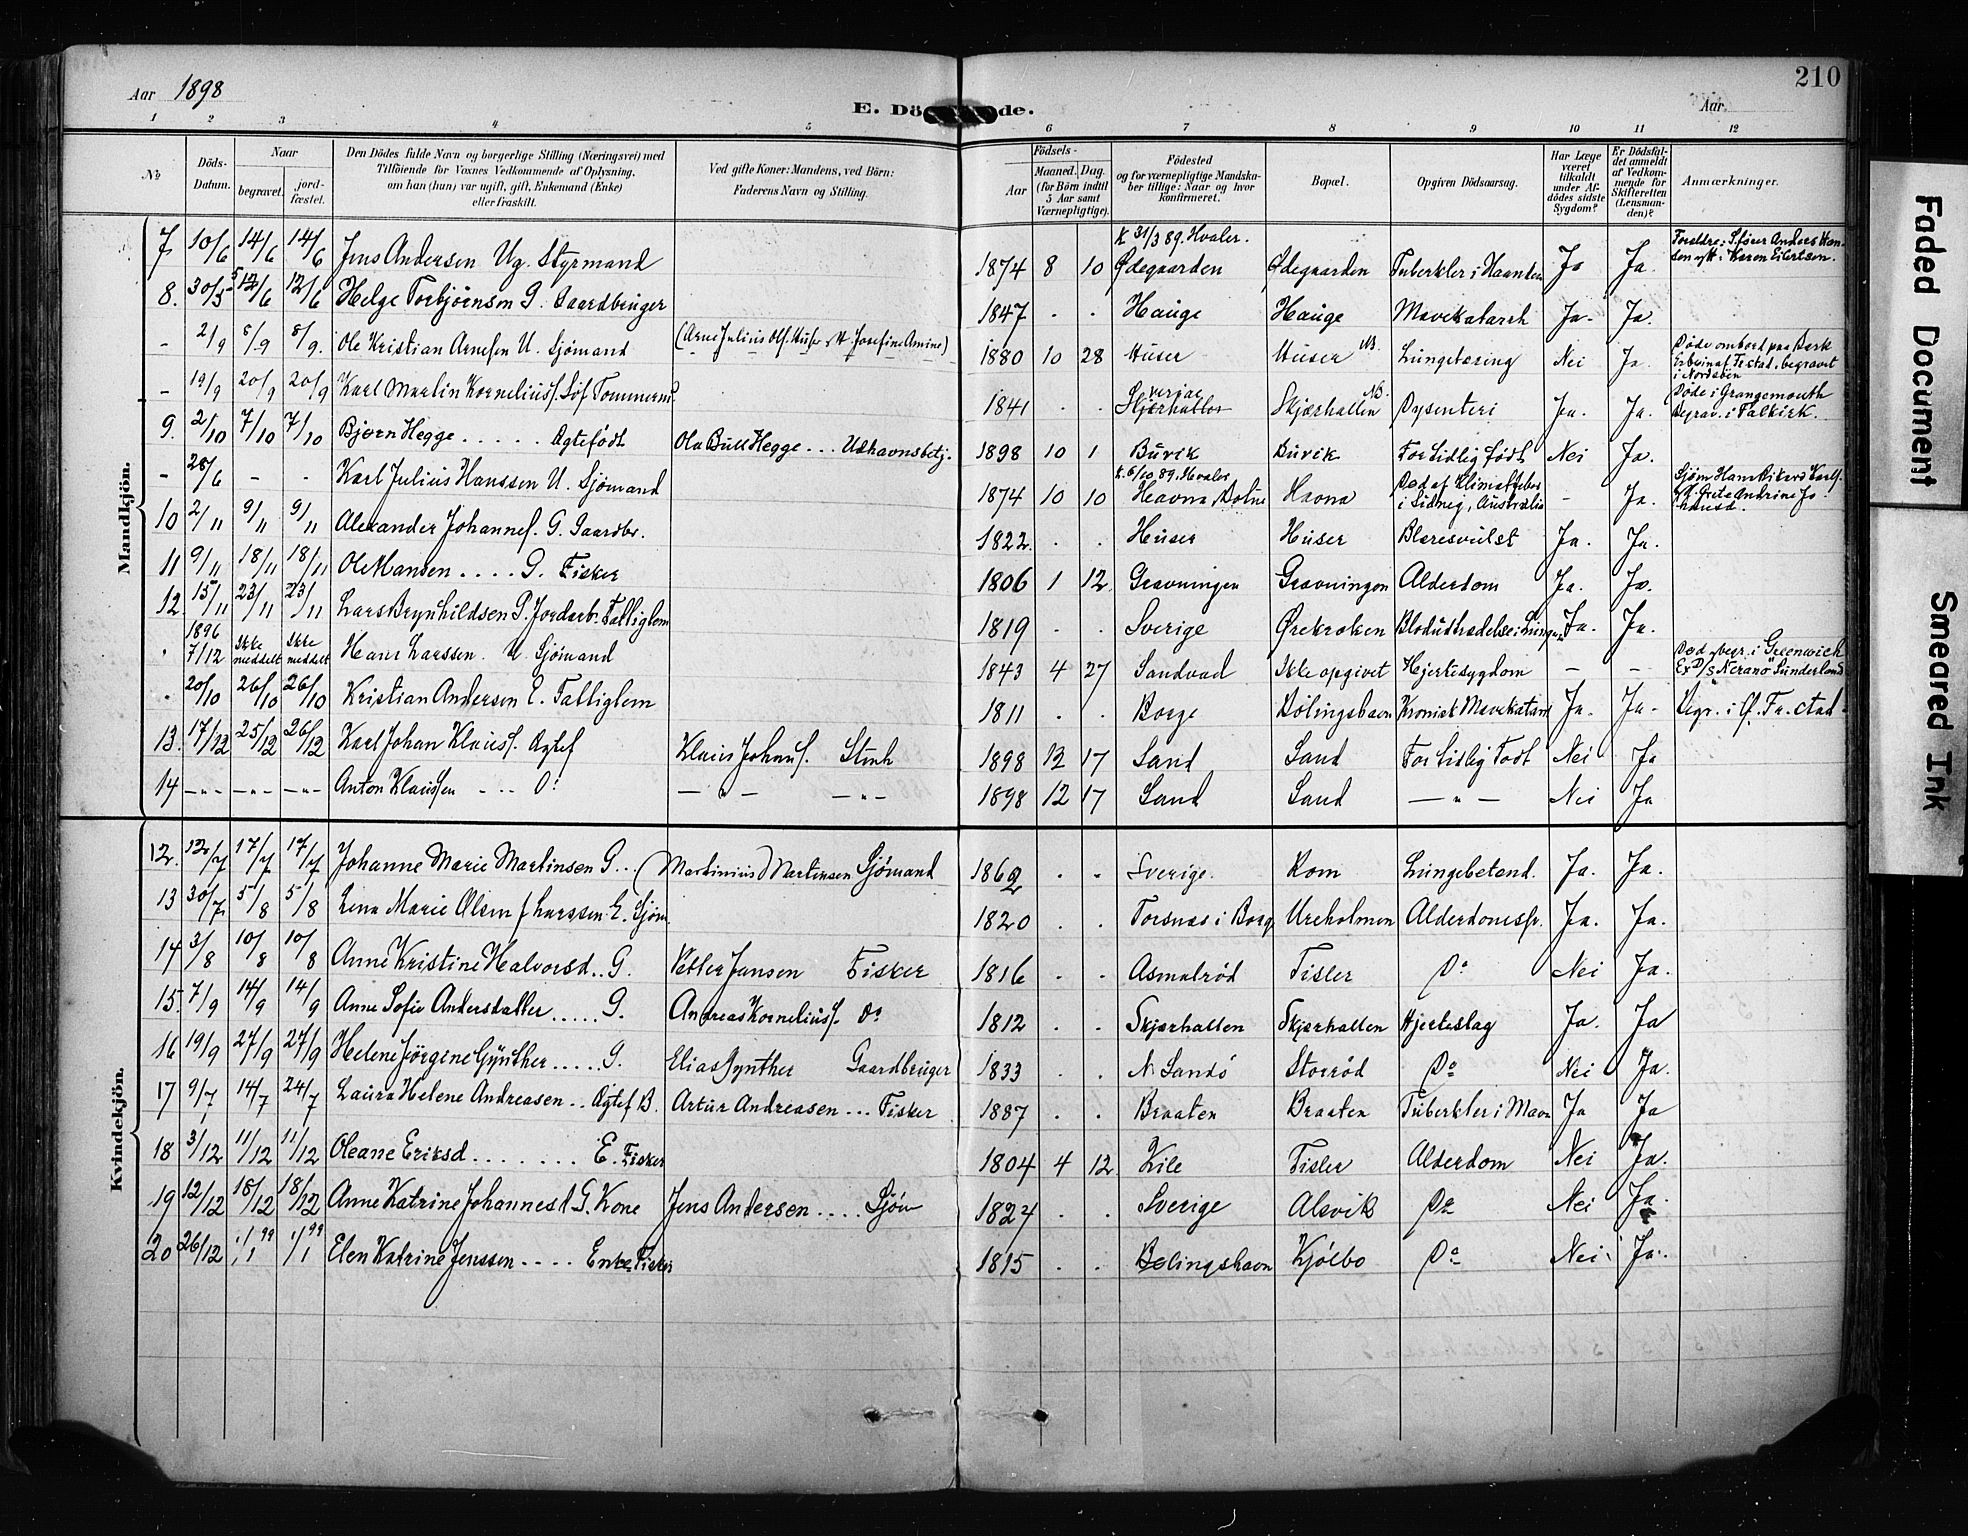 Aar 1898
E. Dö de.
Aar
210
1 2 3 4 5 6 7 8 9 10 11 12
No
Döds-Datum.
Naar
begravet.
jord-fæstet.
Den Dödes fulde Navn og borgerlige Stilling (Næringsvei) med
Tilföiende for Voxnes Vedkommende af Oplysning,
om han (hun) var ugift, gift, Enkemand (Enke)
eller fraskilt.
Ved gifte Koner: Mandens, ved Börn:
Faderens Navn og Stilling.
Födsels-
Aar
Maaned. Dag.
(for Börn indtil
5 Aar samt
Værnepligtige).
Födested
og for værnepligtige Mandska-
ber tillige: Naar og hvor
konfirmeret.
Bopæl.
Opgiven Dödsaarsag.
Har Læge
været
tilkaldt
under Af-
dödes sidste
Sygdom?
Er Dödsfal-
det anmeldt
af Vedkom-
mende for
Skifteretten
(Lensman-
den)?
Anmærkninger.
Mandkjön.
7 10/6 14/6 14/6 Jens Andersen Ug. Styrmand 1874 8 10 K 31/3 89. Hvaler. Ødegaarden Ødegaarden Tuberkler i Ja Ja. Forældre: Anders Han-
sen Karen Eilertsen.
8. 30/5 12/6 12/6 Helge Torbjørnsen G. Gaardbruger 1847 . . Hauge Hauge Mavekatarrh Ja. Ja.
- 2/9 8/9 8/9. Ole Kristian Arnesen U. Sjömand (Arne Julius Josefine Amine) 1880 10 28 Huser Huser NB. Lungetæring Nei Ja. Døde ombord paa Bark
begravet
i Nordsöen
- 19/9 20/9 20/9 Karl Martin Korneliuss. 1841 . . Sverige Skjærhallen NB. Dysenteri Ja. Ja. Døde i Grangemouth
Begrav. i Falkirk.
9. 2/10 7/10 7/10 Bjørn Hegge . . . . . Ægtefödt Ola Bull Hegge . . . Udhavnsbetj. 1898 10 1 Buvik Buvik For tidlig födt Nei Ja.
- 28/6 - - Karl Julius Hanssen U. Sjömand 1874 10 10 K. 6/10 89. Hvaler Havna Havna Död af Klimatfeber
i Sidney, Australia - Ja. Sjöm Hans Rikard Karls.
Grete Andrine Jo-
hansd.
10 2/11 9/11 9/11 Alexander Johannes. G. Gaardbr. 1822. . . Huser Huser Blæresvulst Ja. Ja.
11 9/11 18/11 18/11 Ole Hansen . . . . G. Fisker 1806 1 12. Gravningen Gravningen Alderdom Ja. Ja.
12. 15/11 23/11 23/11 Lars Brynhildsen G. Jordarb. Fattiglem 1819 . . Sverige Ørekroken Blodudtrædelse i Lungen Ja. Ja.
1896
7/12 Ikke meddelt Ikke meddelt Hans Larssen. U. Sjömand 1843 4 27 Sandvad Ikke opgivet Hjertesygdom - - Død & begr. i Greenwich
Ex D/S "Nerano" Sunderland
20/10 26/10 26/10 Kristian Andersen E. Fattiglem 1811 . . Borge Bölingshavn Kronisk Mavekatarrh Ja. Ja. Begr. i Ø. Fr.stad.
13. 17/12 25/12 26/12 Karl Johan Klauss. Ægtef Klaus Johans. Stenh 1898 12 17 Sand Sand For tidlig Födt Nei Ja
14 -"- -"- -"- Anton Klaussen - . . Do - " - - " - 1898 12 17 Sand Sand - " - Nei Ja
Kvindekjön.
12. 12/7 17/7 17/7 Johanne Marie Martinsen G . . . (Martinius) Martinsen Sjömand 1862 . . Sverige. Rom Lungebetænd. Ja. Ja.
13 30/7 5/8 5/8 Lena Marie Olsen f Larssen. E. Sjöm. 1820 . . Torsnæs i Borge Ureholmen Alderdomssv. Ja. Ja.
14 3/8 10/8 10/8 Anne Kristine Halvorsd . . G. Petter Jansen Fisker 1816 . . Asmalröd Tisler Do Nei Ja.
15. 7/9 14/9 14/9 Anne Sofie Andersdatter . . . . . G. Andreas Korneliuss. Do 1812 . . Skjærhallen Skjærhallen Hjerteslag Ja. Ja
16 19/9 27/9 27/9 Helene Jörgine Gynther . . . . . G. Elias Gynther Gaardbruger 1833 . . N. Sandö Storröd Do Nei Ja.
17 9/7 14/7 24/7 Laura Helene Andreasen . . Ægtef B. Artur Andreasen . . . Fisker 1887 . . Braaten Braaten Tuberkler i Mavn Ja Ja
18 3/12 11/12 11/12 Oleane Eriksd . . . . . . . E. Fisker 1804 4 12. Kile Tisler Alderdom Nei Ja.
19 12/12 18/12 18/12 Anne Katrine Johannesd G. Kone Jens Andersen . . . . Sjöm 1824 . . Sverige Alsvik Do Nei Ja.
20 26/12 1/1 99 1/1 99 Elen Katrine Jenssen . . . . Enke Fisker 1815 . . Bølingshavn Kjölbo Do Nei Ja.
Faded Document
Smeared Ink